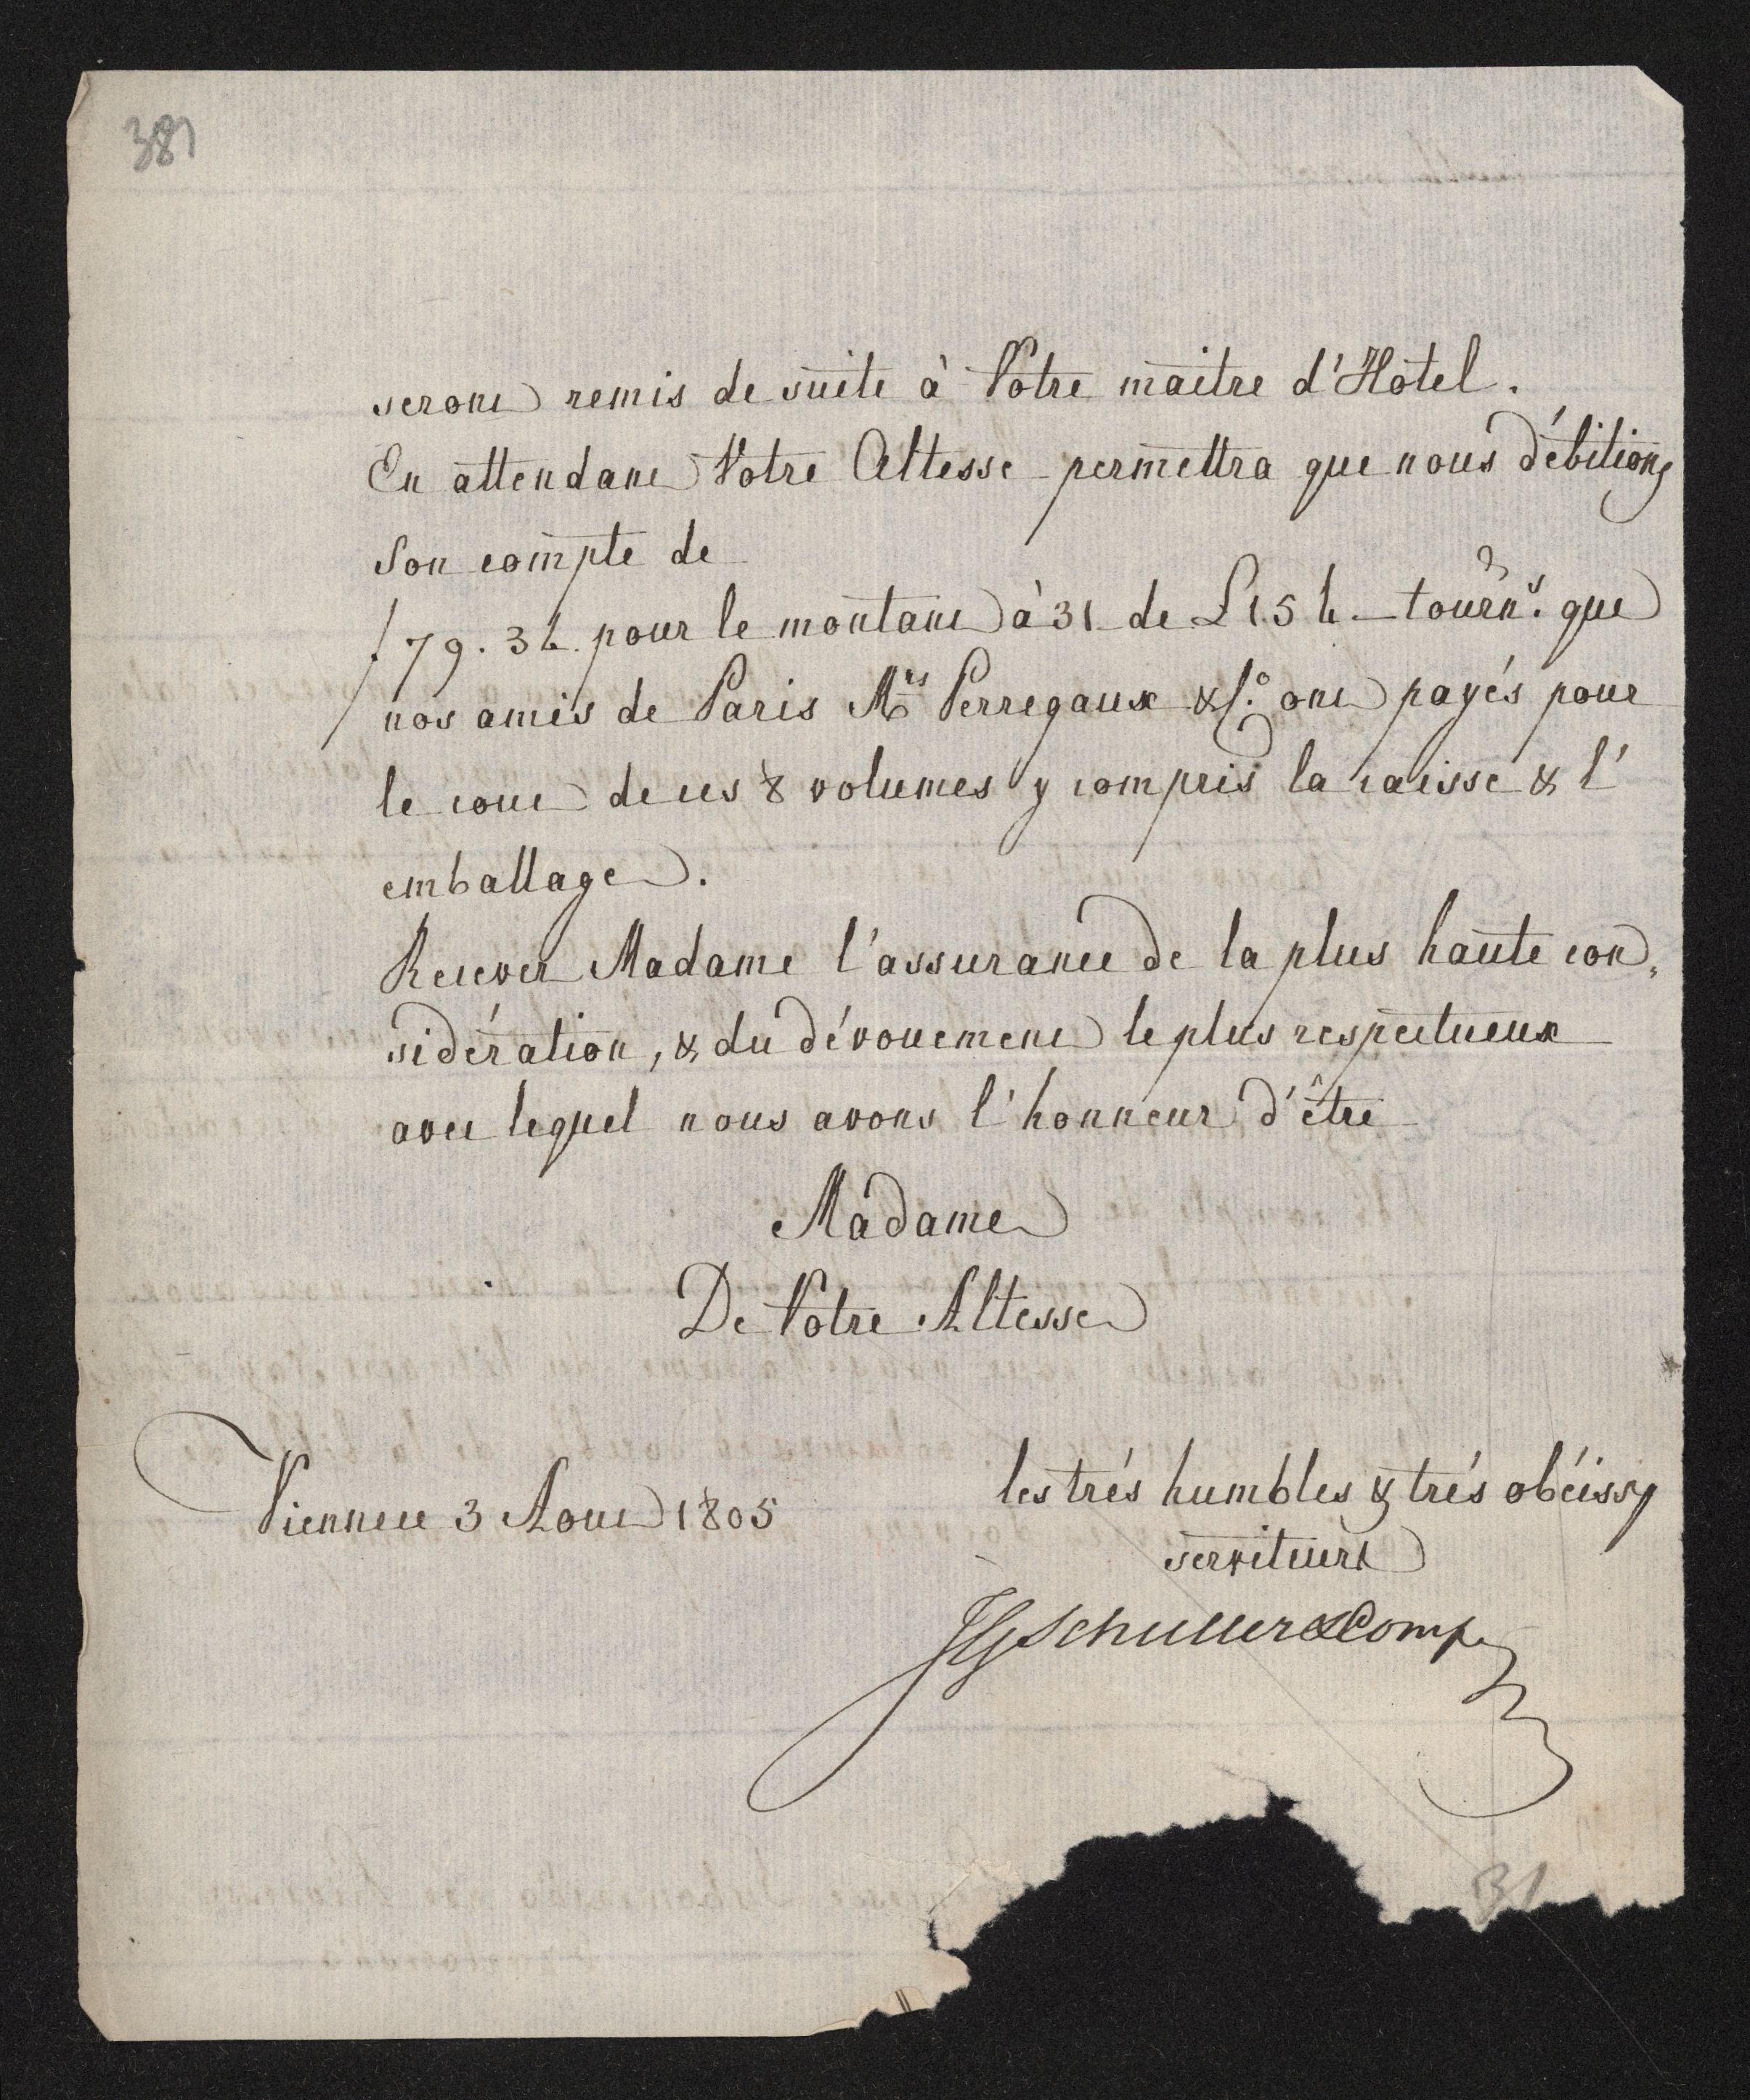 381
seront remis de suite à Votre maitre d'Hôtel.
En attendant Votre Altesse permettra que nous débitions
Son compte de
f 79. 34. pour le montant à 31 de £ 154 – tourns. que
nos amis de Paris Mrs Perregaux & Co. ont payés pour
le cout de ces 8 volumes y compris la caisse & l'
emballage.
Recever Madame l'assurance de la plus haute con„
sidération, & du dévouement le plus respectueux
avec lequel nous avons l'honneur d'être
Madame
De Votre Altesse
les trés humbles & trés obéiss
Vienne ce 3 Aout 1805
serviteurs
JG Schuller & Comp
31